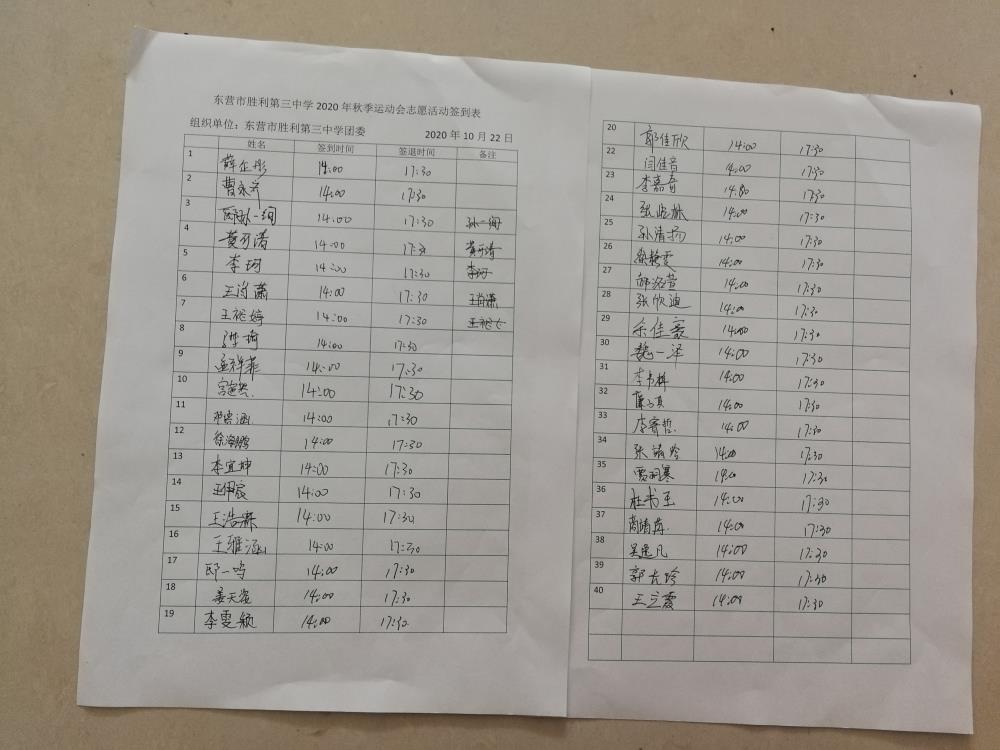 东营市胜利第三中学 2020 年秋季运动会志愿活动签到表
组织单位：东营市胜利第三中学团委 2020 年 10 月 22 日
姓名 签到时间 签退时间 备注
1 14:00 17:30
2 曹永齐 14:00 17:30
3 孙一绚 14:00 17:30 孙一绚
4 黄可清 14:00 17:30 黄可清
5 李珂 14:00 17:30 李珂
6 王尚潇 14:00 17:30 王尚潇
7 王裕婷 14:00 17:30
8 14:00 17:30
9 孟祥菲 14:00 17:30
10 14:00 17:30
11 14:00 17:30
12 徐海鹏 14:00 17:30
13 李宜坤 14:00 17:30
14 王伊宸 14:00 17:30
15 王浩霖 14:00 17:30
16 王雅涵 14:00 17:30
17 邱一鸣 14:00 17:30
18 姜天姿 14:00 17:30
19 李雯颖 14:00 17:30
20 郭佳欣 14:00 17:30
22 闫佳音 14:00 17:30
23 李嘉音 14:00 17:30
24 14:00 17:30
25 孙清扬 14:00 17:30
26 14:00 17:30
27 14:00 17:30
28 张欣迪 14:00 17:30
29 余佳宸 14:00 17:30
30 魏一泽 14:00 17:30
31 李书棋 14:00 17:30
32 14:00 17:30
33 李睿哲 14:00 17:30
34 张靖玲 14:00 17:30
35 贾羽寒 14:00 17:30
36 杜书至 14:00 17:30
37 商靖苒 14:00 17:30
38 吴逸凡 14:00 17:30
39 郭长玲 14:00 17:30
40 王立霞 14:00 17:30